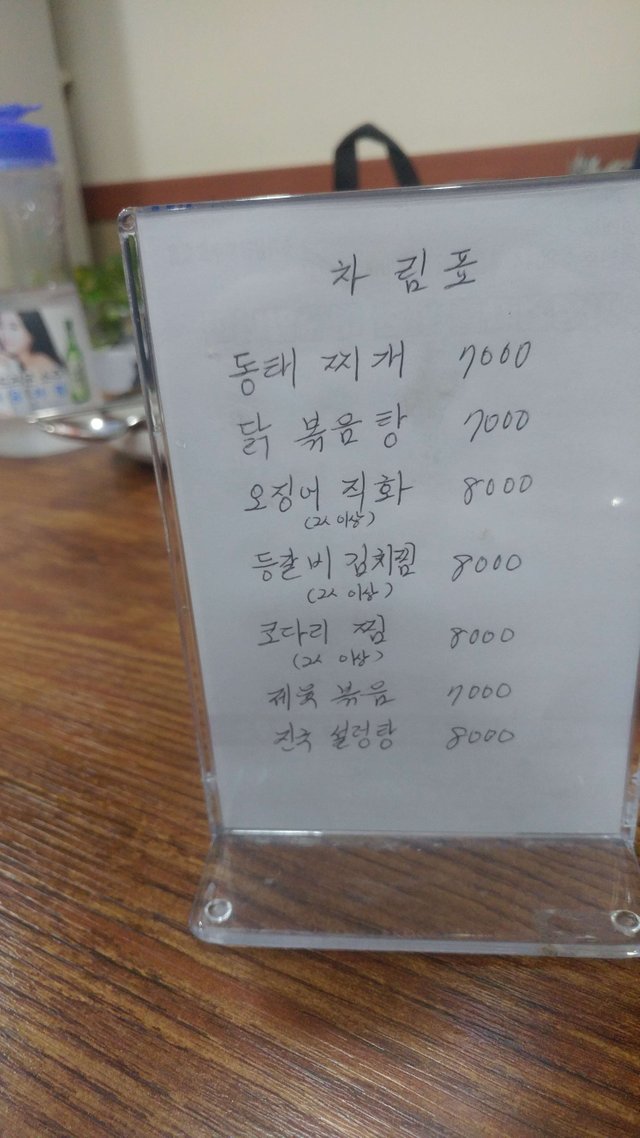 차림표
동태 찌개 7000
닭 볶음탕 7000
오징어 직화 8000
(2人 이상)
등갈비 김치찜 8000
(2人 이상)
코다리 찜 8000
(2人 이상)
제육 볶음 7000
진국 설렁탕 8000